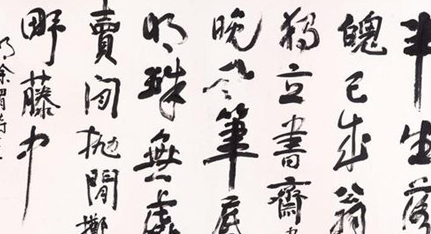 半生落
魄已成翁
獨立書齋
晚風筆底
明珠無處
賣閒拋閒擲
野藤中